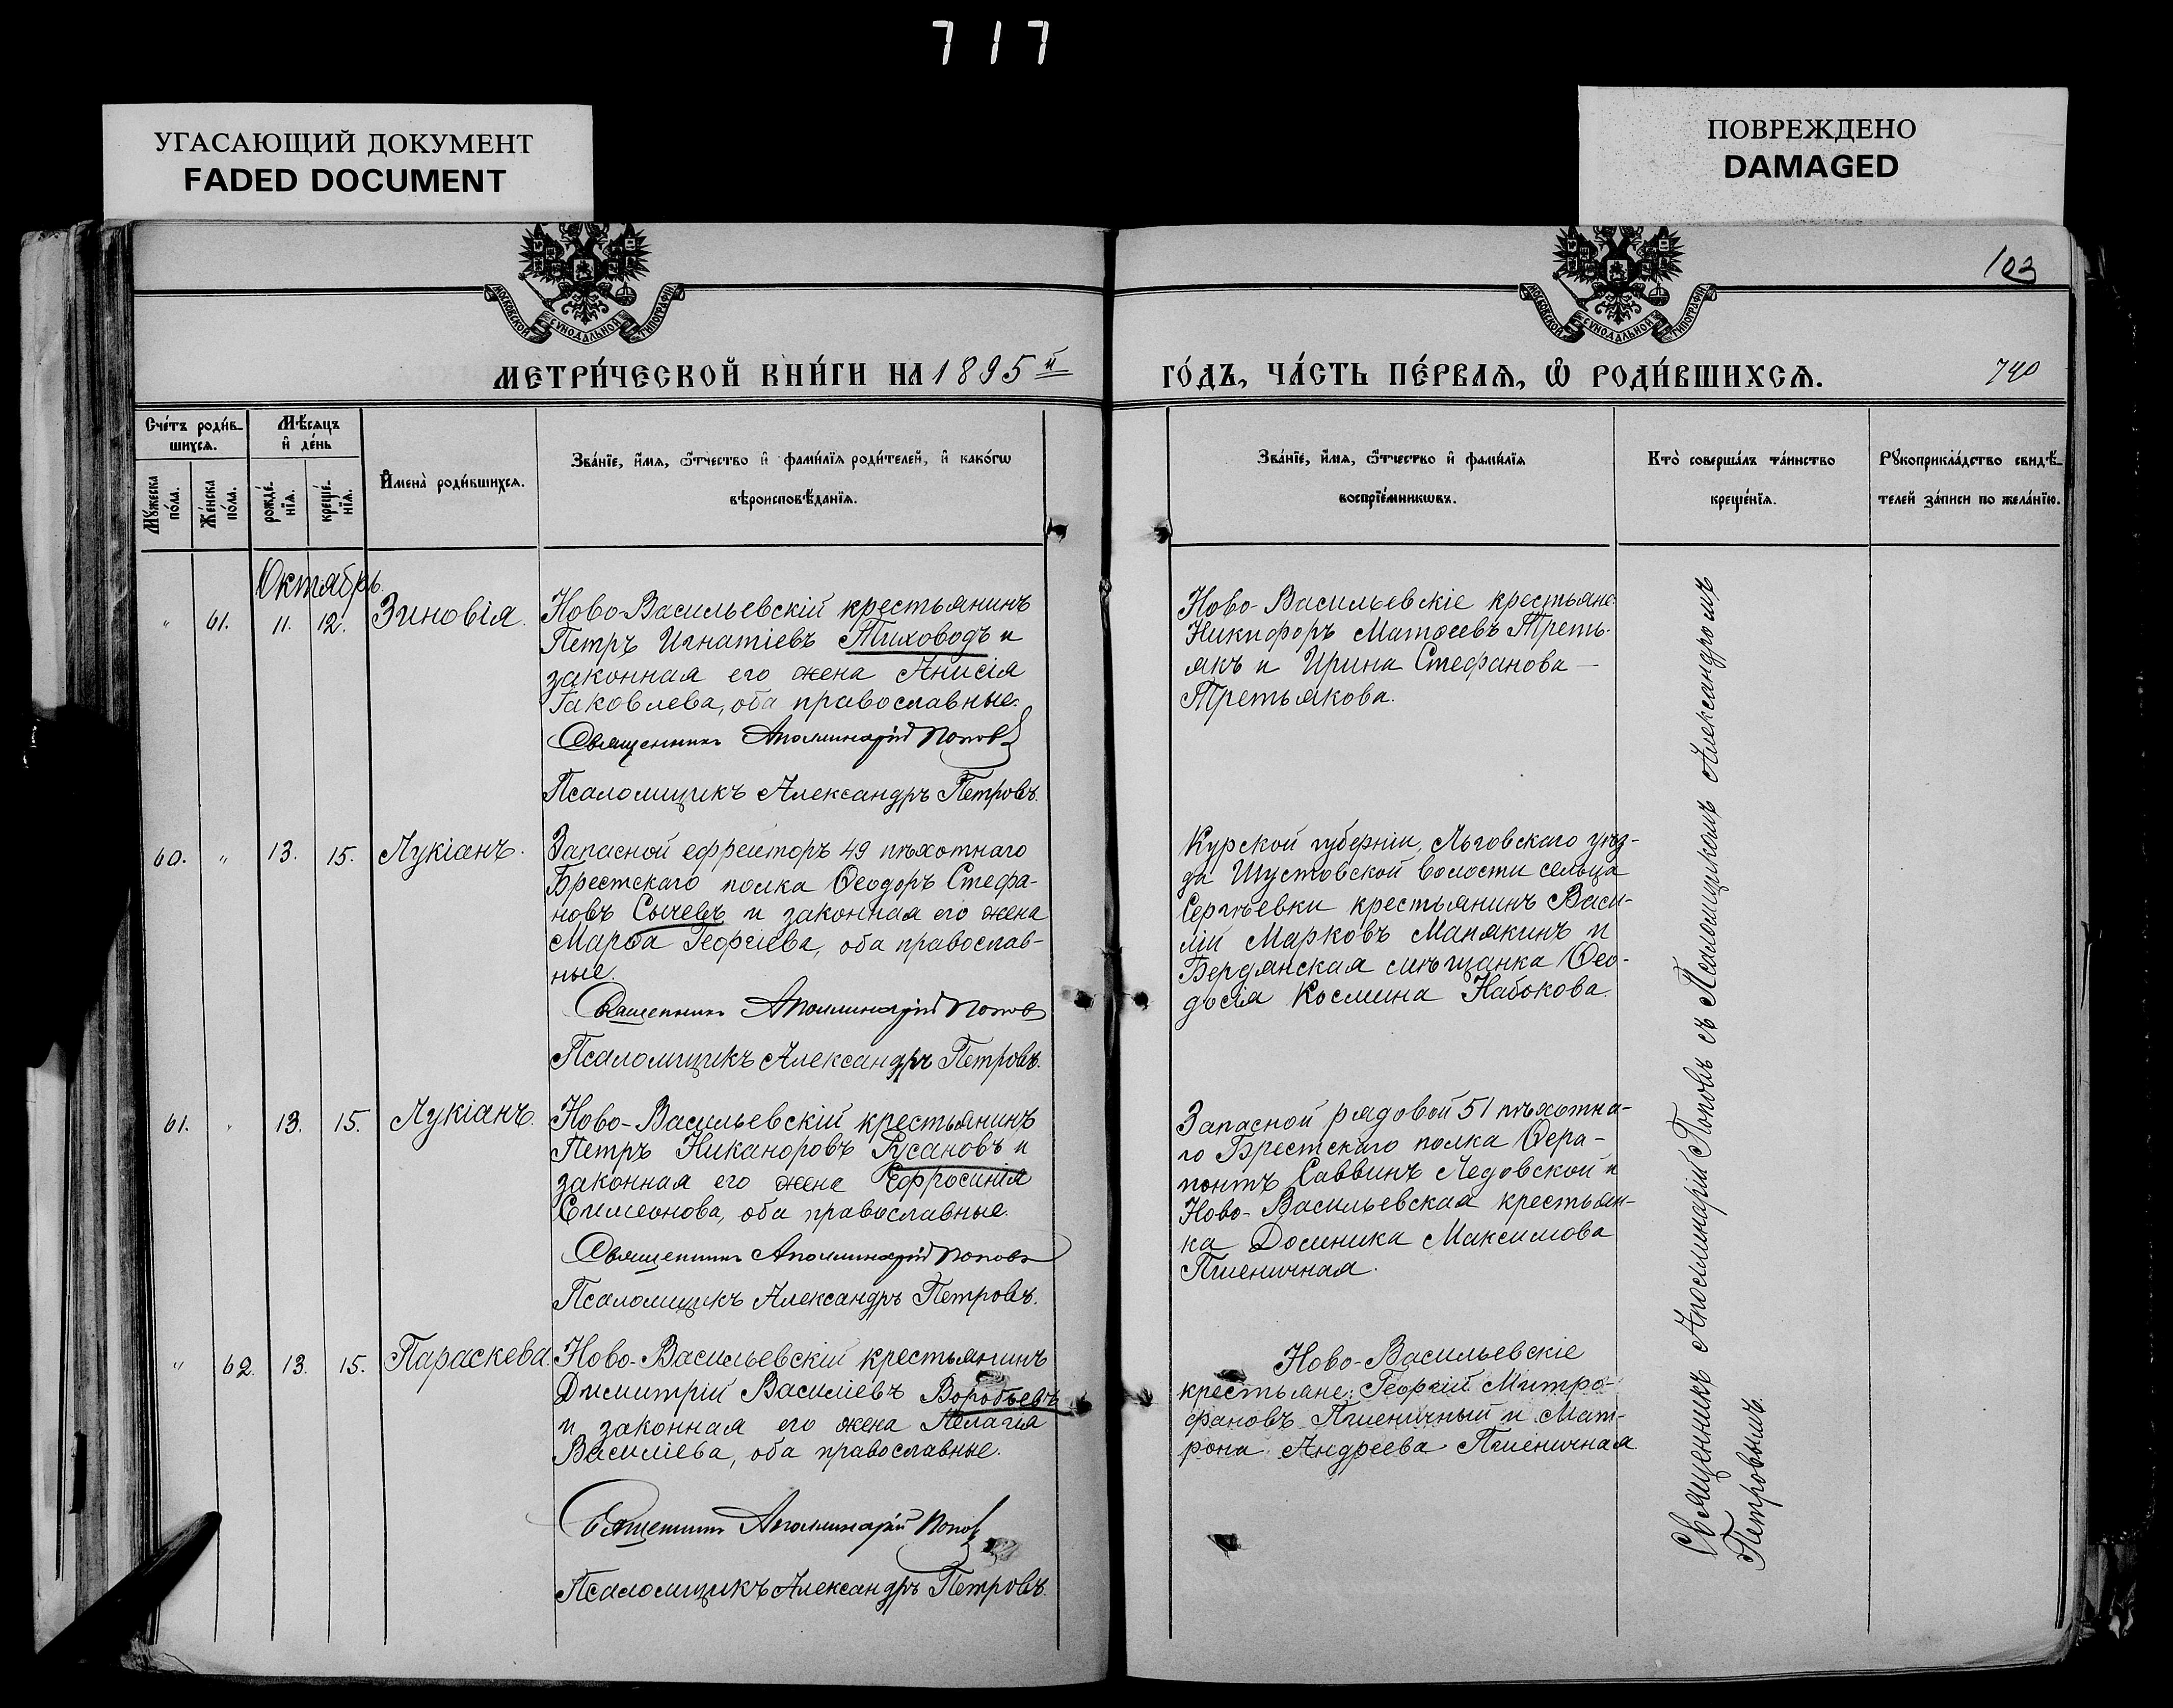 717
УГАСАЮЩИЙ ДОКУМЕНТ
FADED DOCUMENT
ПОВРЕЖДЕНО
DAMAGED
МОСКОВСКОЙ СѴНОДАЛЬНОЙ ТИПОГРАФІИ
МОСКОВСКОЙ СѴНОДАЛЬНОЙ ТИПОГРАФІИ
103
МЕТРИ́ЧЕСКОЙ КНИ́ГИ НА 1895 й
ГО́ДЪ, ЧА́СТЬ ПЕ́РВАѦ, Ѡ҆ РОДИ́ВШИХСѦ.
740
Сче́тъ роди́в-
шихсѧ.
Мѣ́сѧцъ
и҆ де́нь
Мꙋ́жеска
по́ла.
Же́нска
по́ла.
рожде́-
нїѧ.
креще́-
нїѧ.
И҆мена̀ роди́вшихсѧ.
Зва́нїе, и҆́мѧ, ѻ҆́тчество и҆ фами́лїѧ роди́телей, и҆ како́гѡ
вѣроисповѣ́данїѧ.
Зва́нїе, и҆́мѧ, ѻ҆́тчество и҆ фами́лїѧ
воспрїе́мникѡвъ.
Кто̀ соверша́лъ та́инство
креще́нїѧ.
Рꙋкоприкла́дство свидѣ́-
телей за́писи по жела́нїю.
Октябрь.
" 61. 11. 12. Зиновія.
Ново-Васильевскій крестьянинъ
Петръ Игнатіевъ Тиховодъ и
законная его жена Анисія
Іаковлева, оба православные.
Священникъ Аполлинарій Поповъ
Псаломщикъ Александръ Петровъ.
Ново-Васильевскіе крестьяне:
Никифоръ Матѳеевъ Треть-
якъ и Ирина Стефанова —
Третьякова.
60. " 13. 15. Лукіанъ.
Запасной ефрейторъ 49 пѣхотнаго
Брестскаго полка Ѳеодоръ Стефа-
новъ Сычевъ и законная его жена
Марѳа Георгіева, оба православ-
ные.
Священникъ Аполлинарій Поповъ
Псаломщикъ Александръ Петровъ.
Курской губерніи, Льговскаго уѣз-
да Шустовской волости сельца
Сергѣевки крестьянинъ Васи-
лій Марковъ Манякинъ и
Бердянская мѣщанка Ѳео-
досія Космина Набокова.
61. " 13. 15. Лукіанъ.
Ново-Васильевскій крестьянинъ
Петръ Никаноровъ Русановъ и
законная его жена Ефросинія
Симеонова, оба православные.
Священникъ Аполлинарій Поповъ
Псаломщикъ Александръ Петровъ.
Запасной рядовой 51 пѣхотна-
го Брестскаго полка Ѳера-
понтъ Саввинъ Ледовской и
Ново-Васильевская крестьян-
ка Домника Максимова
Пшеничная.
" 62. 13. 15. Параскева.
Ново-Васильевскій крестьянинъ
Димитрій Василіевъ Воробьевъ
и законная его жена Пелагія
Василіева, оба православные.
Священникъ Аполлинарій Поповъ
Псаломщикъ Александръ Петровъ.
Ново-Васильевскіе
крестьяне: Георгій Митро-
фановъ Пшеничный и Мат-
рона Андреева Пшеничная.
Священникъ Аполлинарій Поповъ съ Псаломщикомъ Александромъ
Петровымъ.